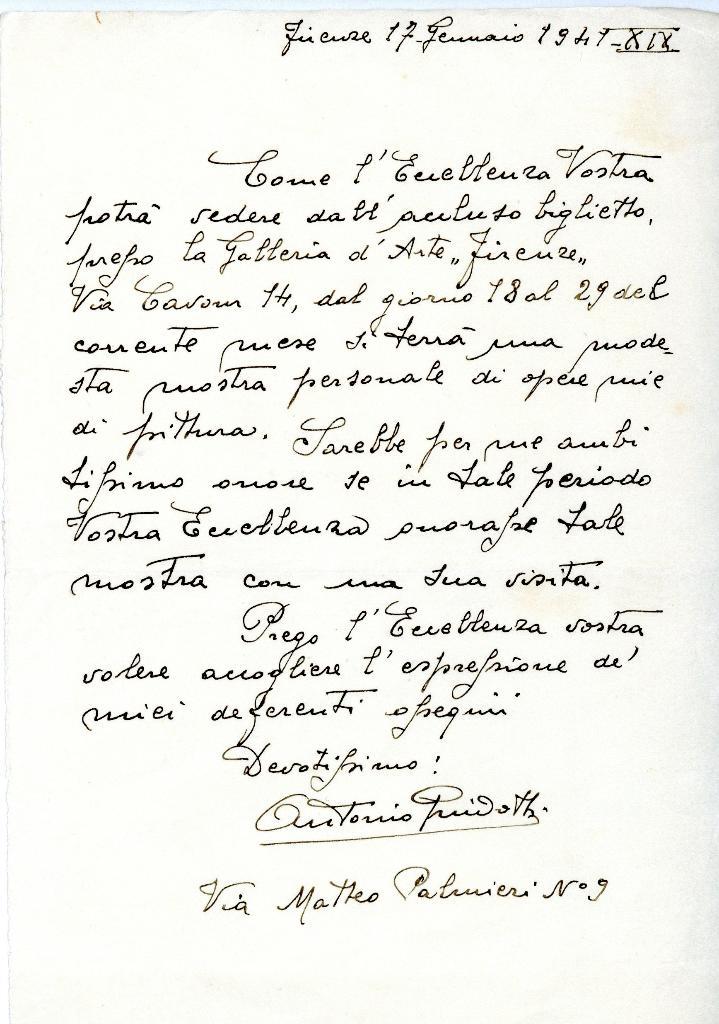 Firenze 17 Gennaio 1941-XIX
Come l'Eccellenza Vostra
potrà vedere dall'accluso biglietto,
presso la Galleria d'Arte „Firenze„
Via Cavour 14, dal giorno 18 al 29 del
corrente mese si terrà una mode-
sta mostra personale di opere mie
di pittura. Sarebbe per me ambi
tissimo onore se in tale periodo
Vostra Eccellenza onorasse tale
mostra con una sua visita.
Prego l'Eccellenza vostra
volere accogliere l'espressione de'
miei deferenti ossequii
Devotissimo!
Antonio Guidotti.
Via Matteo Palmieri Nº 9